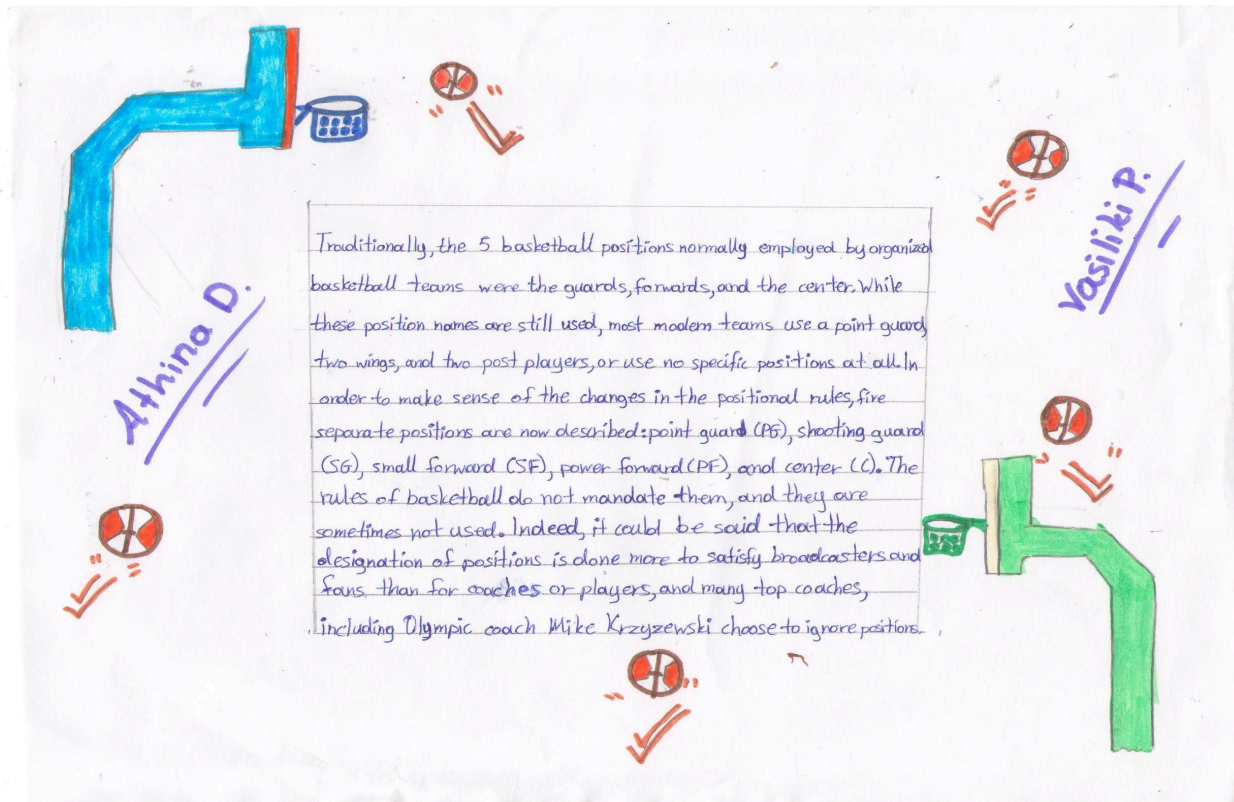 Traditionally, the 5 basketball positions normally employed by organized
basketball teams were the guards, forwards, and the center. While
these position names are still used, most modern teams use a point guard,
two wings, and two post players, or use no specific positions at all. In
order to make sense of the changes in the positional rules, five
separate positions are now described: point guard (PG), shooting guard
(SG), small forward (SF), power forward (PF), and center (C). The
rules of basketball do not mandate them, and they are
sometimes not used. Indeed, it could be said that the
designation of positions is done more to satisfy broadcasters and
fans than for coaches or players, and many top coaches,
including Olympic coach Mike Krzyzewski choose to ignore positions.
Athina D.
Vasiliki P.